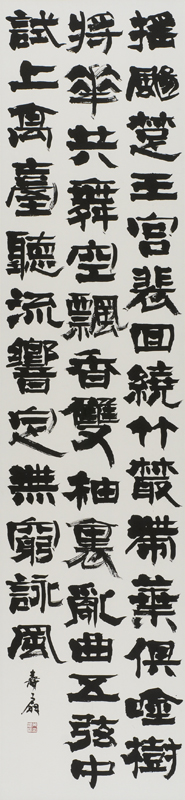 搖颺楚王宮裴回繞竹叢帶葉俱唫樹
將華共舞空飄香雙袖裏亂曲五弦中
試上高臺聽流響定無窮詠風